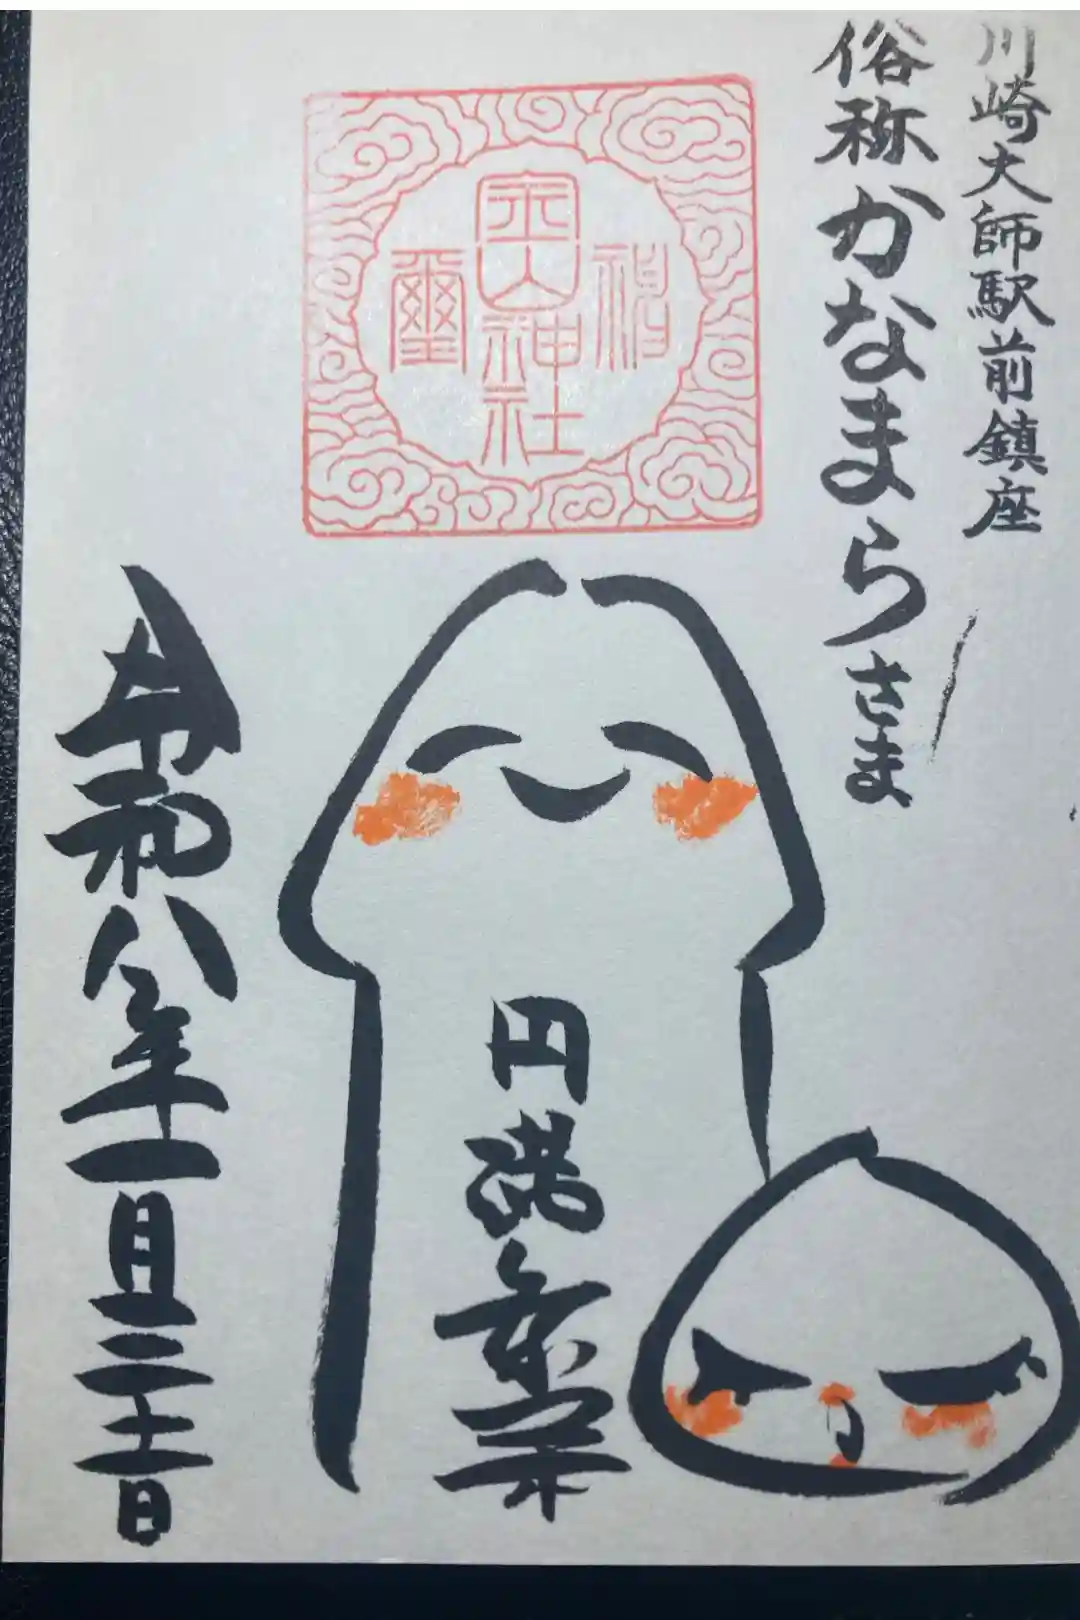 川崎大師駅前鎮座
俗称かなまらさま
金山神社
璽
円満
令和八年一月三十一日